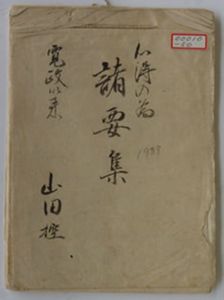 心得の為
諸要集
1989
寛政以来
山田控
00010
-50